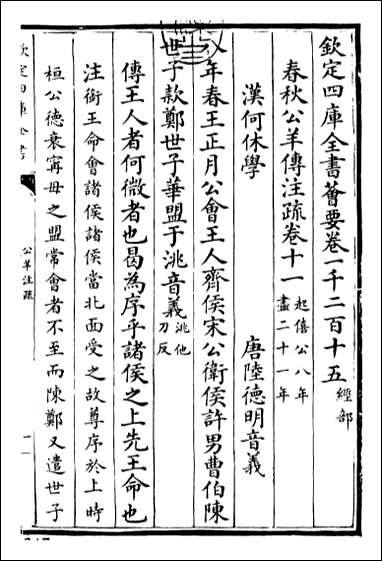 欽定四庫全書薈要卷一千二百十五 經部
春秋公羊傳注疏卷十一 起僖公八年盡二十一年
漢何休學 唐陸德明音義
八年春王正月公會王人齊侯宋公衛侯許男曹伯陳
世子款鄭世子華盟于洮音義 洮他刀反
傳王人者何微者也曷為序乎諸侯之上先王命也
注銜王命會諸侯諸侯當北面受之故尊序於上時
桓公德衰甯毋之盟常會者不至而陳鄭又遣世子
公羊注疏
一